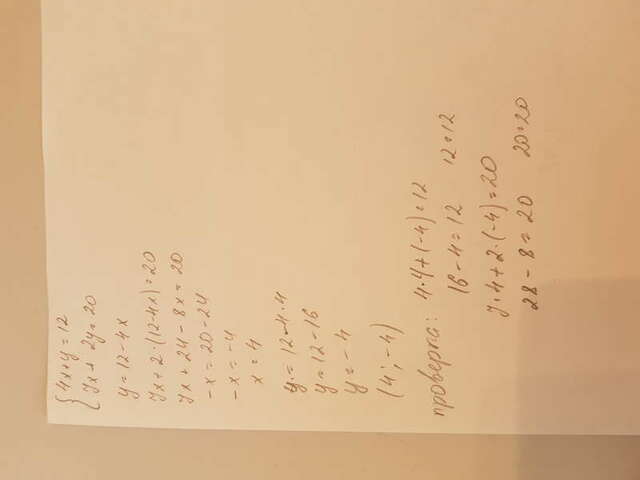 {4x+y=12
7x+ 2y=20
y=12-4x
7x+2·(12-4x)=20
7x+24-8x=20
-x=20-24
-x=-4
x=4
y=12-4·4
y=12-16
y=-4
(4;-4)
проверка: 4·4+(-4)=12
16-4=12 12=12
7·4+2·(-4)=20
28-8=20 20=20